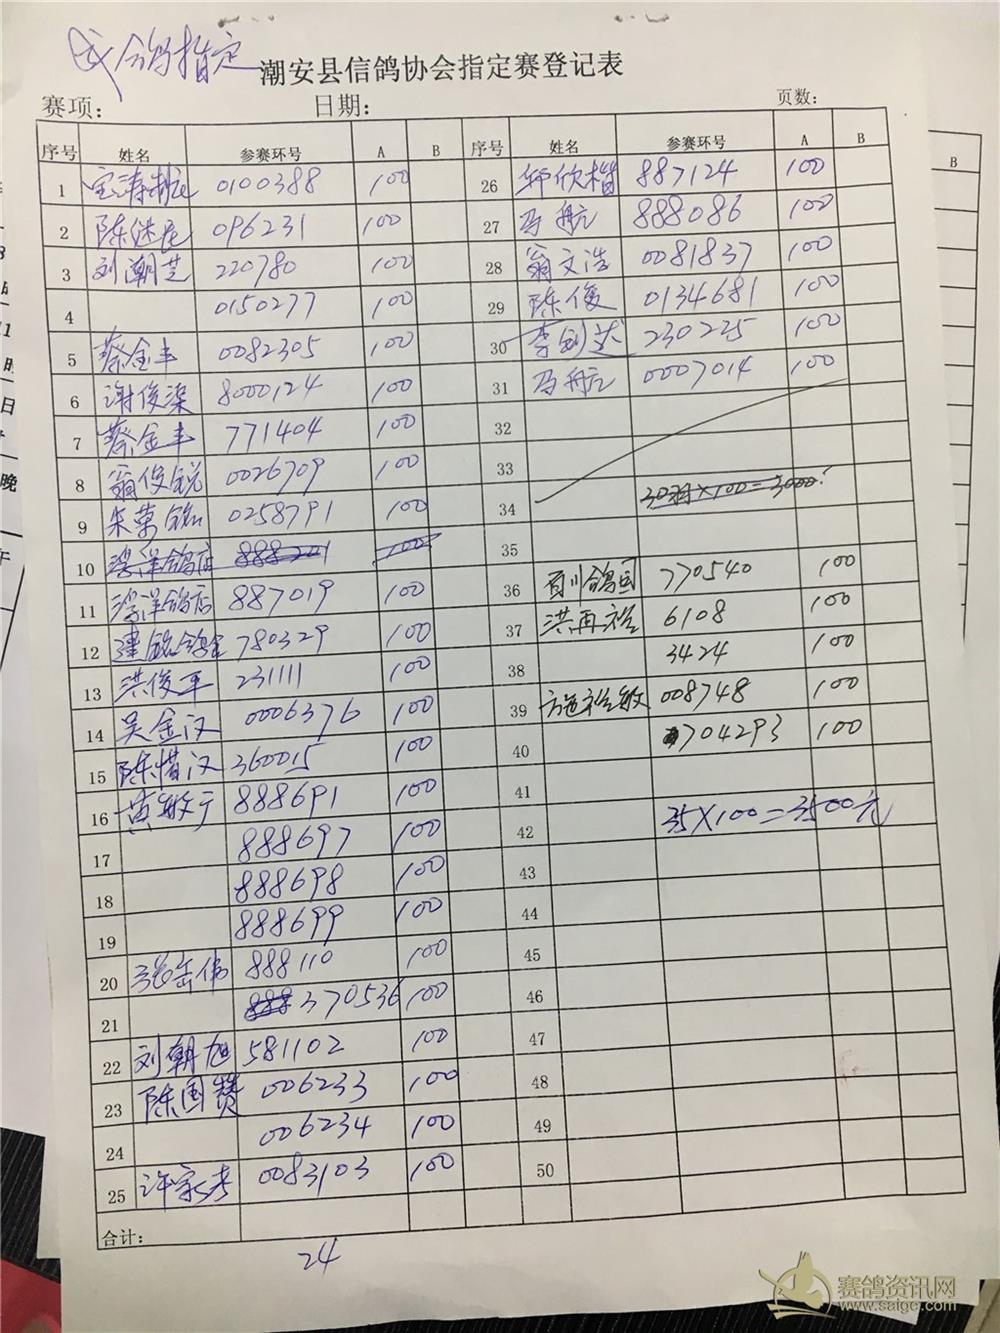 成鸽指定
潮安县信鸽协会指定赛登记表
赛项: 日期: 页数:
序号 姓名 参赛环号 A B
1 0100388 100
2 陈继 096231 100
3 刘潮芝 220780 100
4 0150277 100
5 蔡金丰 0082305 100
6 谢俊深 8000124 100
7 蔡金丰 771404 100
8 翁俊锐 0026709 100
9 朱荣铭 0258791 100
10 洋鸽店 100
11 洋鸽店 887019 100
12 建铭鸽舍 780329 100
13 洪俊平 231111 100
14 吴金汉 0006376 100
15 陈惜汉 360015 100
16 黄敏宁 888691 100
17 888697 100
18 888698 100
19 888699 100
20 张岳伟 888110 100
21 888 370536 100
22 刘朝旭 581102 100
23 陈国赞 006233 100
24 006234 100
25 许家 0083103 100
合计:
24
序号 姓名 参赛环号 A B
26 欣楷 887124 100
27 马航 888086 100
28 翁文浩 0081837 100
29 陈俊 0134681 100
30 李剑达 230225 100
31 马航 0007014 100
32
33
34 30羽×100=3000
35
36 百川鸽园 770540 100
37 洪再裕 6108 100
38 3424 100
39 施裕敏 008748 100
40 704293 100
41
42 35×100=3500元
43
44
45
46
47
48
49
50
B
晚
赛鸽资讯网
www.saige.com